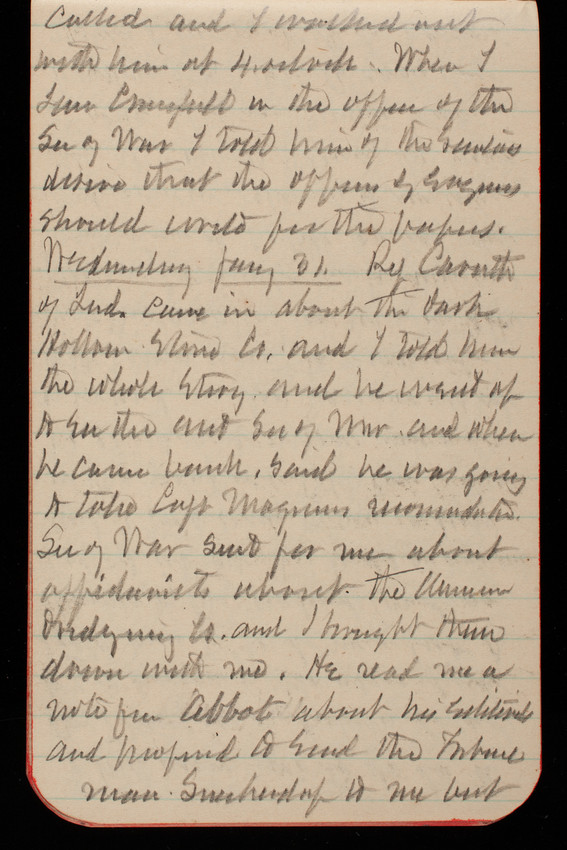 Called and I walked out
with him at 4 oclock. When I
saw in the office of the
Sec of War I told him of the
desire that the officers
should write for the papers.
Wednesday Jany 31. Rep
of Ind. came in about the Dark
Hollow Stone Co. and I told him
the whole story and he went up
to see the asst Sec of War and when
he came back, said he was going
to take Capt
Sec of War sent for me about
affidavits about the American
Dredging Co. and I brought them
down with me. He read me a
note from Abbot about his
and proposed to send the Tribune
man to me but